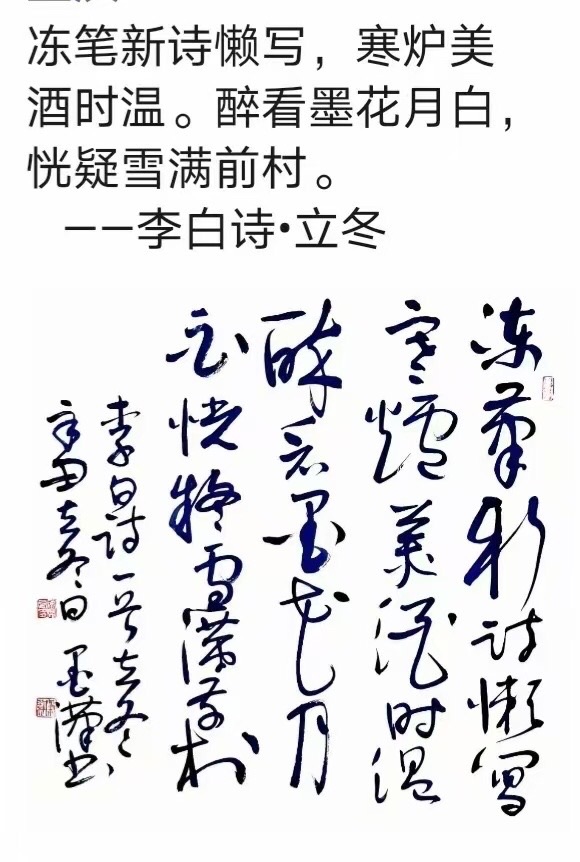 冻笔新诗懒写，寒炉美
酒时温。醉看墨花月白，
恍疑雪满前村。
——李白诗•立冬
冻笔新诗懒写
寒炉美酒时温
醉看墨花月
白恍疑雪满前村
李白诗一首立冬
辛丑立冬日 墨汉书